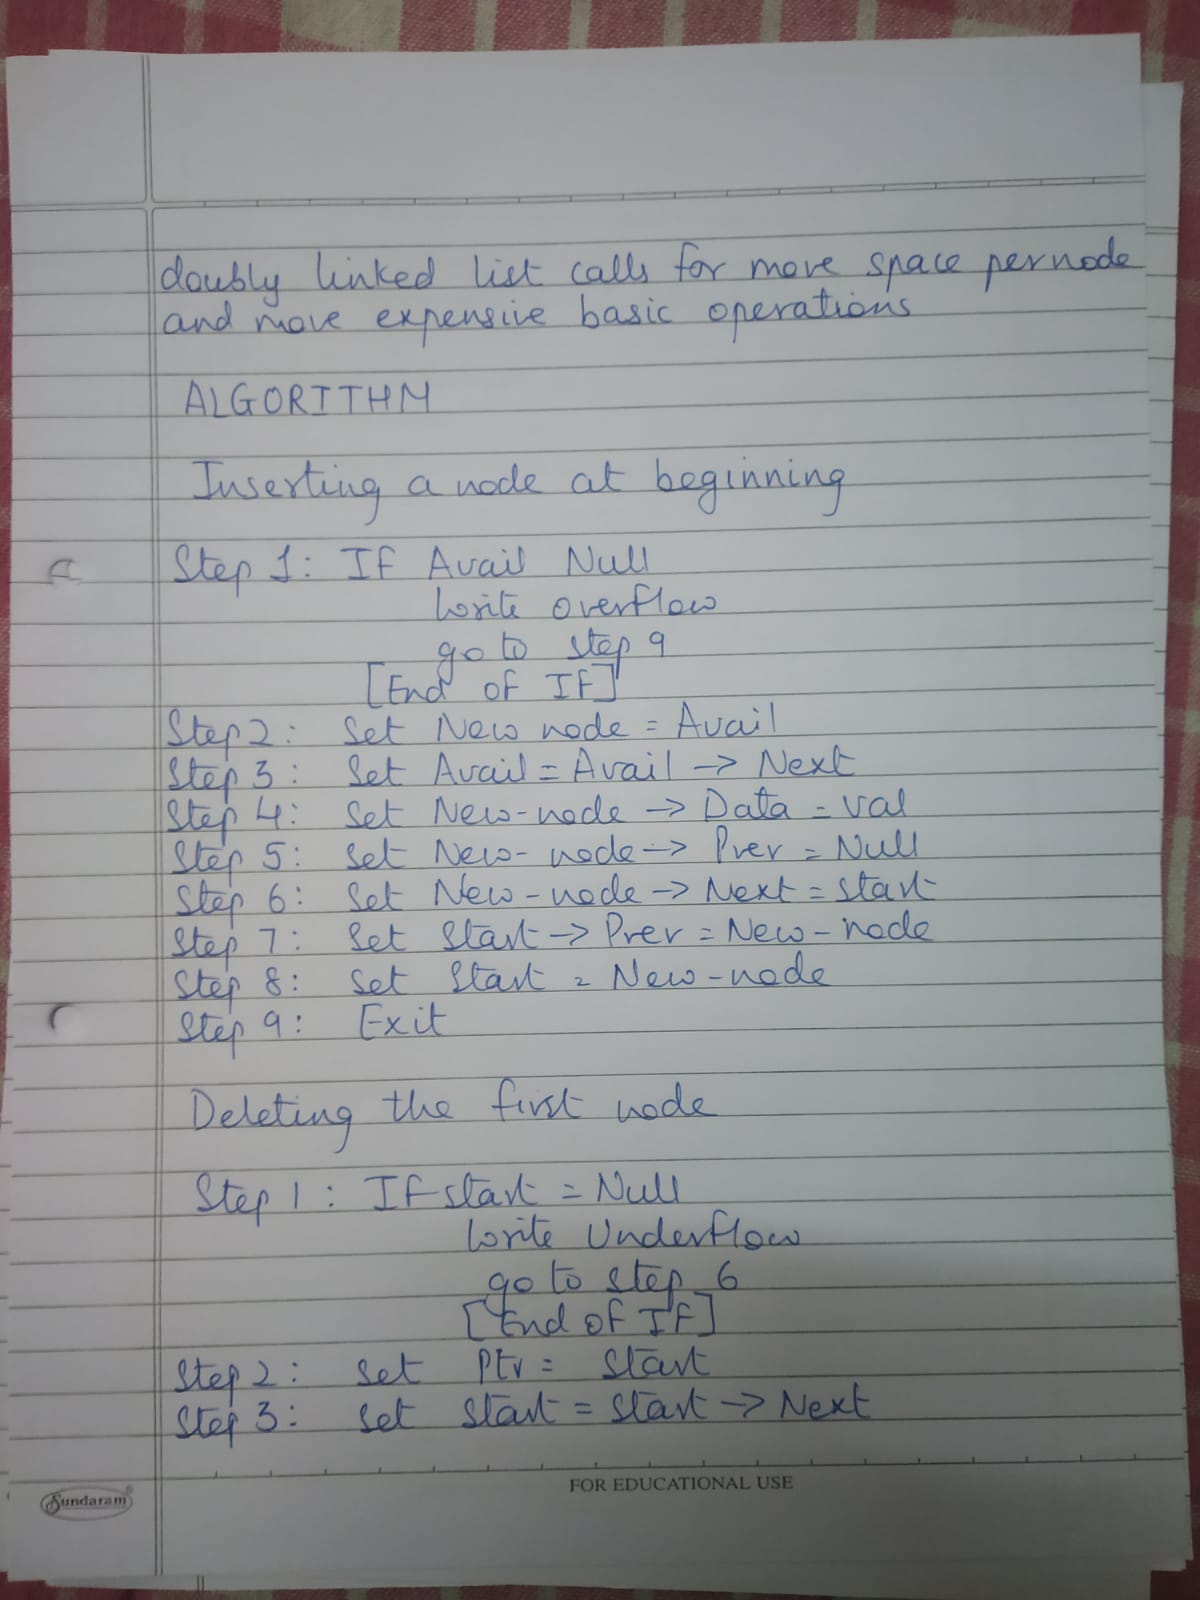 doubly linked list calls for more space per node
and more expensive basic operations
ALGORITHM
Inserting a node at beginning
Step 1: If Avail Null
Write overflow
go to step 9
[End of If]
Step 2: Set New node = Avail
Step 3: Set Avail = Avail -> Next
Step 4: Set New-node -> Data = val
Step 5: Set New-node -> Prev = Null
Step 6: Set New-node -> Next = Start
Step 7: Set Start -> Prev = New-node
Step 8: Set Start = New-node
Step 9: Exit
Deleting the first node
Step 1: If start = Null
Write Underflow
go to step 6
[End of If]
Step 2: Set Ptr = Start
Step 3: Set Start = Start -> Next
FOR EDUCATIONAL USE
Sundaram